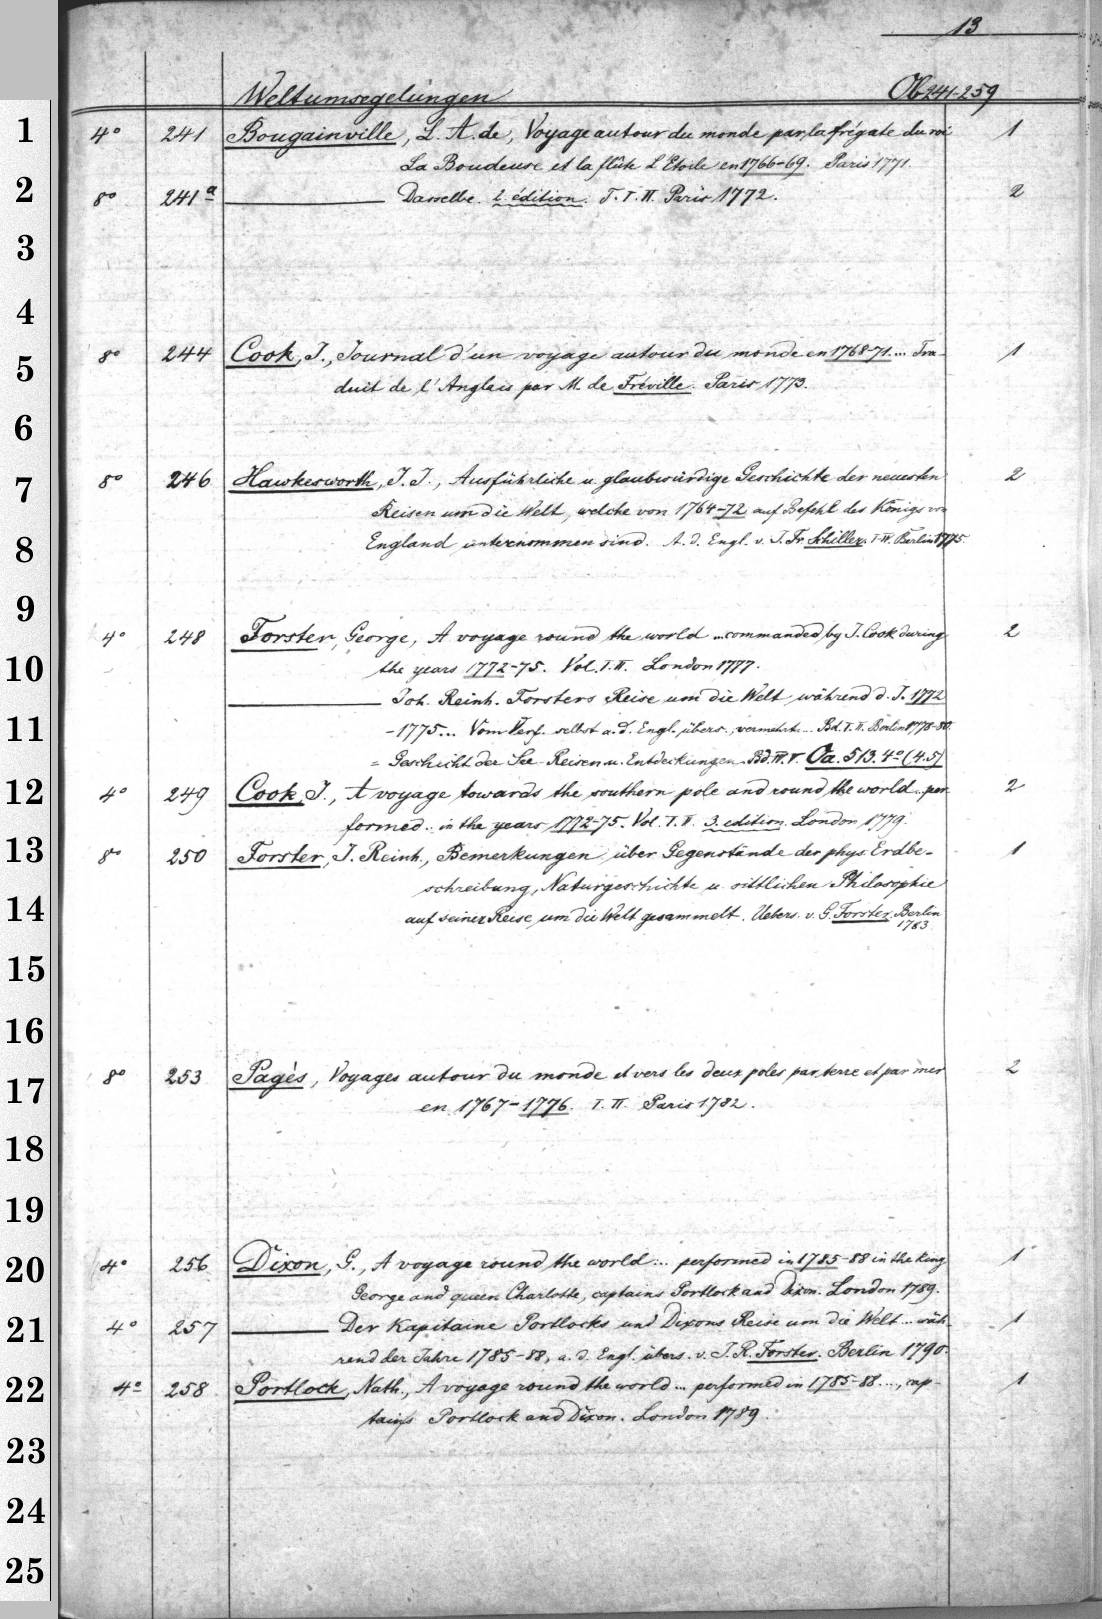 13
Weltumsegelungen Ob 241-259
1
4° 241 Bougainville, L. A. de, Voyage autour du monde par la frégate du roi 1
La Boudeuse et la flûte L'Etoile en 1766-69. Paris 1771.
2
8° 241a ——— Dasselbe. 2. édition. T. I. II. Paris 1772. 2
3
4
8° 244 Cook, J., Journal d'un voyage autour du monde en 1768-71... Tra- 1
5
duit de l'Anglais par M. de Fréville. Paris 1773.
6
7
8° 246 Hawkesworth, J. J., Ausführliche u. glaubwürdige Geschichte der neuesten 2
Reisen um die Welt, welche von 1764-72 auf Befehl des Königs von
8
England unternommen sind. A. d. Engl. v. J. Fr. Schiller. I-III. Berlin 1775.
9
4° 248 Forster, George, A voyage round the world ... commanded by J. Cook during 2
10
the years 1772-75. Vol. I. II. London 1777.
——— Joh. Reinh. Forsters Reise um die Welt während d. J. 1772
11
-1775... Vom Verf. selbst a. d. Engl. übers., vermehrt... Bd. I. II. Berlin 1778-80.
= Geschicht der See-Reisen u. Entdeckungen Bd. IV. V. Oa. 513. 4° (4.5)
12
4° 249 Cook, J., A voyage towards the southern pole and round the world.. per- 2
formed.. in the years 1772-75. Vol. I. II. 3. edition. London 1779.
13
8° 250 Forster, J. Reinh., Bemerkungen über Gegenstände der phys. Erdbe- 1
schreibung, Naturgeschichte u. sittlichen Philosophie
14
auf seiner Reise um die Welt gesammelt. Uebers. v. G. Forster. Berlin
1783
15
16
17
8° 253 Pagès, Voyages autour du monde et vers les deux poles par terre et par mer 2
en 1767-1776. T. II. Paris 1782.
18
19
20
4° 256 Dixon, G., A voyage round the world ... performed in 1785-88 in the King 1
George and queen Charlotte, captains Portlock and Dixon. London 1789.
21
4° 257 ——— Der Kapitaine Portlocks und Dixons Reise um die Welt ... wäh- 1
rend der Jahre 1785-88, a. d. Engl. übers. v. J. R. Forster. Berlin 1790.
22
4° 258 Portlock, Nath., A voyage round the world ... performed in 1785-88 ..., cap- 1
tains Portlock and Dixon. London 1789.
23
24
25